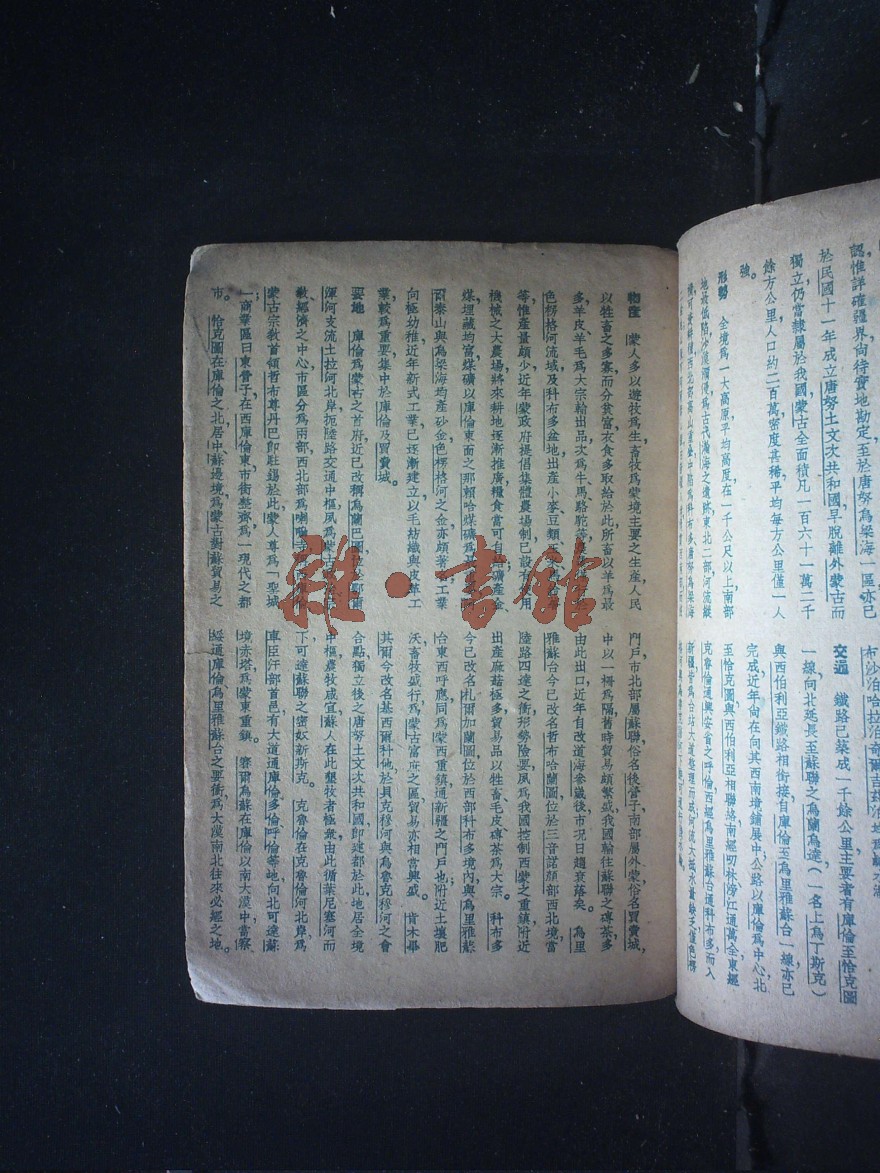 認惟詳確疆界尙待實地勘定至於唐努烏梁海一區亦已
於民國十一年成立唐努土文次共和國,早脫離外蒙古而
獨立仍當隸屬於我國,蒙古全面積凡一百六十一萬二千
餘方公里人口約二百萬密度甚稀平均每方公里僅一人
強。
形勢 全境爲一大高原,平均高度在一千公尺以上,南部
地最低陷,沙漠瀰漫,爲古代瀚海之遺跡,東北二部河流縱
布沙泊哈拉泊奇爾吉茲泊地
交通 鐵路已築成一千餘公里,主要者有庫倫至恰克圖
一線,向北延長至蘇聯之烏蘭烏達(一名上烏丁斯克)
與西伯利亞鐵路相銜接,自庫倫至烏里雅蘇台一線亦已
完成,近年尙在向其西南境鋪展中公路以庫倫爲中心,北
至恰克圖與西伯利亞相聯絡,南經叨林滂江通萬全東經
克魯倫通興安省之呼倫,西經烏里雅蘇台通科布多而入
物產 蒙人多以遊牧爲生,畜牧爲蒙境主要之生產,人民
以牲畜之多寡而分貧富,衣食多取給於此,所畜以羊爲最
多,羊皮、羊毛爲大宗輸出品,次爲牛馬駱駝
色楞格河流域及科布多盆地出產小麥豆類
等,惟產量頗少,近年蒙政府提倡集體農場制,已設
機械之大農場,將來耕地逐漸推廣,糧食當可自
煤埋藏均富,煤礦以庫倫東面之那賴哈煤礦爲
肯泰山與烏梁海均產砂金,色楞格河之金亦頗著
向極幼稚,近年新式工業已逐漸建立,以毛紡織與皮革工
業較爲重要,集中於庫倫及買賣城。
要地 庫倫爲蒙古之首府,近已改稱烏蘭巴圖
渾河支流土拉河北岸,扼陸路交通中樞,夙爲蒙古
教經濟之中心,市區分爲兩部,西北部爲喇嘛
蒙古宗教首領哲布尊丹巴卽駐錫於此,蒙人尊爲「聖城
」商業區曰東營子,在西庫倫東,市街整齊,爲一現代之都
市。 恰克圖在庫倫之北,居中蘇邊境,爲蒙古對蘇貿易之
門戶,市北部屬蘇聯,俗名後營子,南部屬外蒙,俗名買賣城,
中以一柵爲隔,舊時貿易頗繁盛,我國輸往蘇聯之磚茶多
由此出口,近年自改道海參崴後,市況日趨衰落矣。 烏里
雅蘇台今已改名哲布哈蘭圖,位於三音諾顏部西北境,當
陸路四達之衝,形勢險要,夙爲我國控制西蒙之重鎭,附近
出產蔴菇極多,貿易品以牲畜、毛皮、磚茶爲大宗。 科布多
今已改名札爾加蘭圖,位於西部科布多境內,與烏里雅蘇
台東西呼應,同爲蒙西重鎭,通新疆之門戶也,附近土壤肥
沃,畜牧盛行,爲蒙古富庶之區,貿易亦相當興盛。 肯木畢
其爾今改名基西爾科他,於貝克穆河與烏魯克穆河之會
合點,獨立後之唐努土文次共和國,卽建都於此,地居全境
中樞,農牧咸宜,蘇人在此墾牧者極衆,由此循葉尼塞河而
下,可達蘇聯之密奴新斯克。 克魯倫在克魯倫河北岸,爲
車臣汗部首邑,有大道通庫倫、多倫、呼倫等地,向北可達蘇
境赤塔,爲蒙東重鎭。 賽爾烏蘇在庫倫以南大漠中,當察
綏通庫倫烏里雅蘇台之要衝,爲大漠南北往來必經之地。
雜·書館